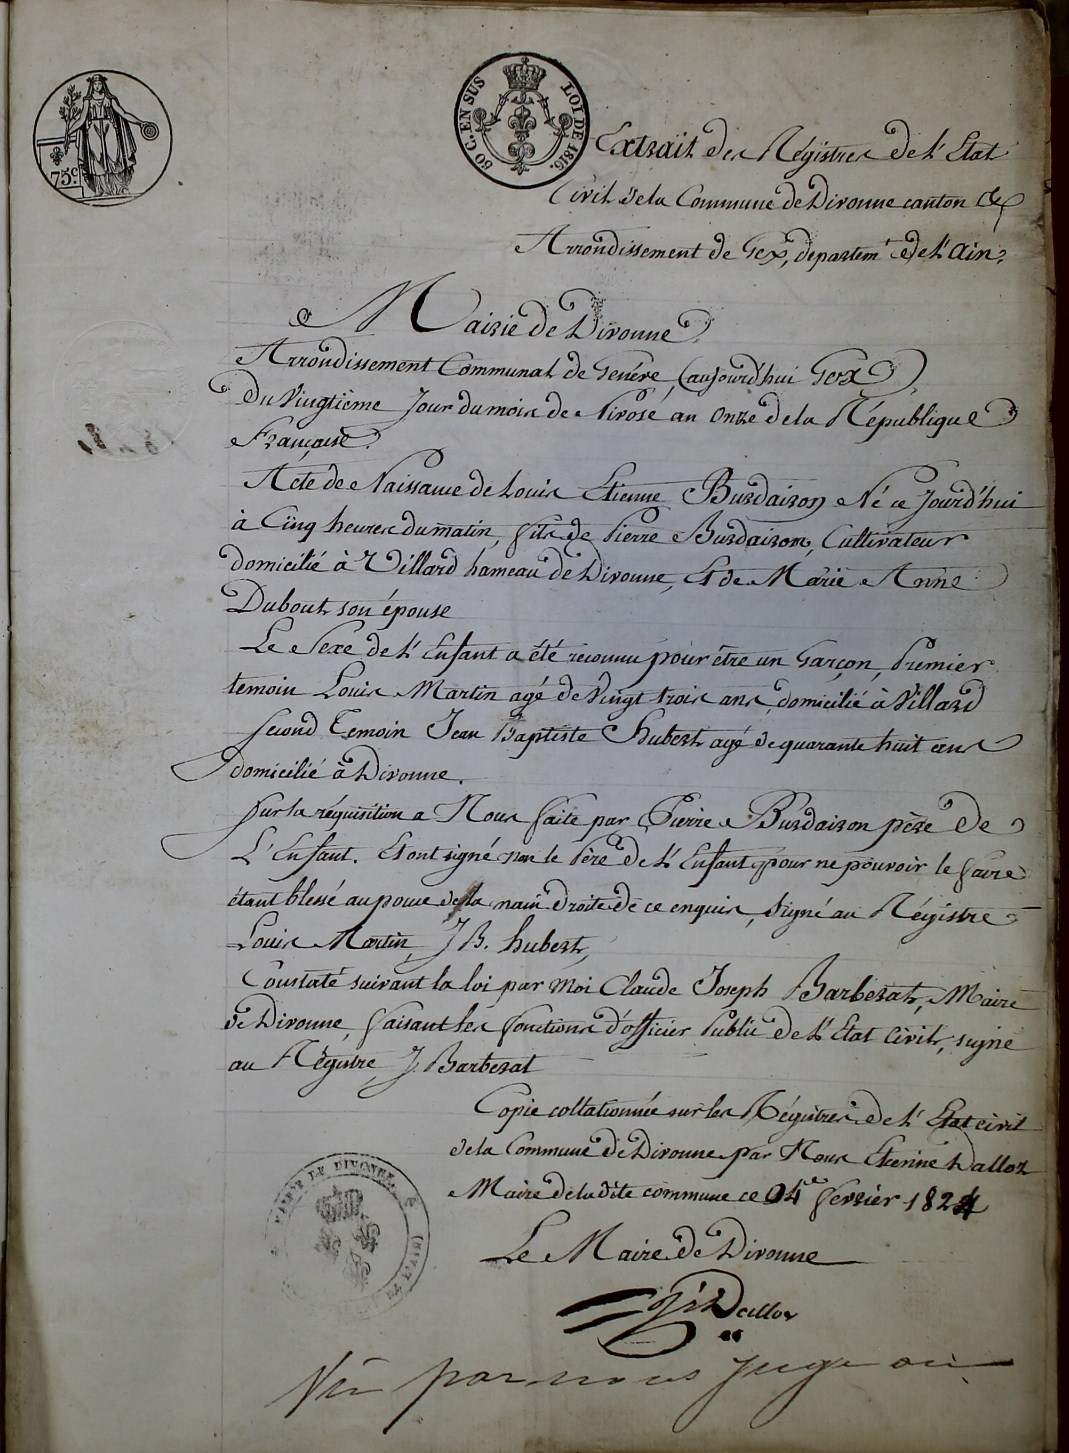 75c.
50 C. EN SUS LOI DE 1816.
Extrait des Régistres de l'Etat
Civil de la Commune de Divonne canton &
Arrondissement de Gex, departemt. de l'Ain.
Mairie de Divonne
Arrondissement Communal de Genève, (aujourd'hui Gex)
Du Vingtième Jour du mois de Nivose an Onze de la République
Française.
Acte de Naissance de Louis Etienne Burdairon Né ce Jourd'hui
à Cinq heures du matin, fils de Pierre Burdairon, Cultivateur
domicilié à Villard hameau de Divonne, Et de Marie Anne
Dubout son épouse
Le Sexe de l'Enfant a été reconnu pour être un Garçon, Premier
temoin Louis Martin agé de Vingt trois ans, domicilié à Villard
Second Temoin Jean Baptiste Hubert agé de quarante huit ans
domicilié à Divonne.
Sur la réquisition a Nous faite par Pierre Burdairon père de
L'Enfant. Et ont signé non le Père de l'Enfant pour ne pouvoir le faire
étant blessé au pouce de la main droite de ce enquis, Signé au Régistre
Louis Martin, J B. hubert,
Constaté suivant la loi par Moi Claude Joseph Barberat, Maire
de Divonne, faisant les fonctions d'officier Public de l'Etat Civil, signé
au Régistre, J. Barberat
Copie collationnée sur les Régistres de l'Etat civil
de la Commune de Divonne par Nous Etienne Dalloz
Maire de ladite commune ce 04e fevrier 1824
Le Maire de Divonne
Dalloz
MAIRIE DE DIVONNE
Vu par nous Juge